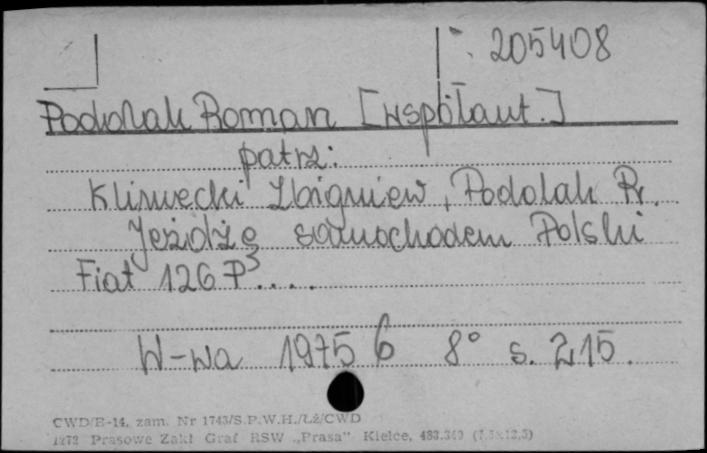 205408
Podolak Roman [współaut.]
patrz:
Klimecki Zbigniew, Podolak R.
Jeżdżę samochodem Polski
Fiat 126 P....
W-wa 1975 6 8° s. 215.
CWD/E-14, zam. Nr 1743/S.P.W.H./Łż/CWD
1272 Prasowe Zakł Graf RSW „Prasa" Kielce, 483.340 (7,5x12,5)